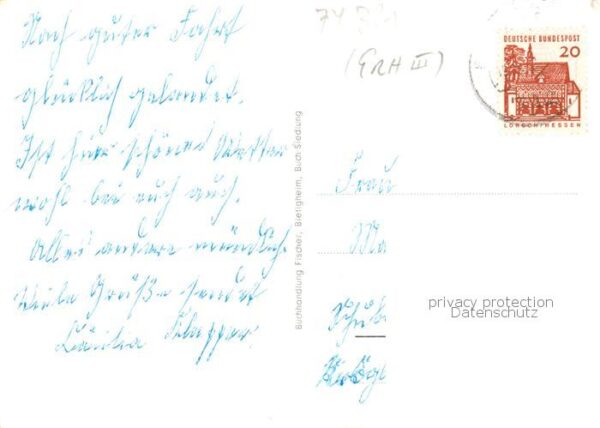 Nach guter Fahrt
glücklich gelandet.
Ist hier schönes Wetter
wohl bei euch auch.
Alles andere mündlich.
Viele Grüße sendet
Cäcilia Klapper.
74 321
(GRH III)
DEUTSCHE BUNDESPOST
20
LORSCH/HESSEN
Buchhandlung Fischer, Bietigheim, Buch-Siedlung
Frau
Ma
privacy protection
Datenschutz